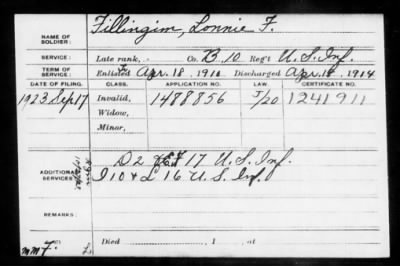 NAME OF SOLDIER: Fillingim, Lonnie F.
SERVICE: Late rank, Co. B 10 Reg't U.S. Inf.
TERM OF SERVICE: Enlisted Apr. 18, 1911 Discharged Apr. 18, 1914
DATE OF FILING. CLASS. APPLICATION NO. LAW. CERTIFICATE NO.
1923 Sep 17 Invalid, 1478856 J/20 1241911
Widow,
Minor,
ADDITIONAL SERVICES: D 2 17 U.S. Inf.
I 10 & L 16 U.S. Inf.
REMARKS:
Died , 1 , at